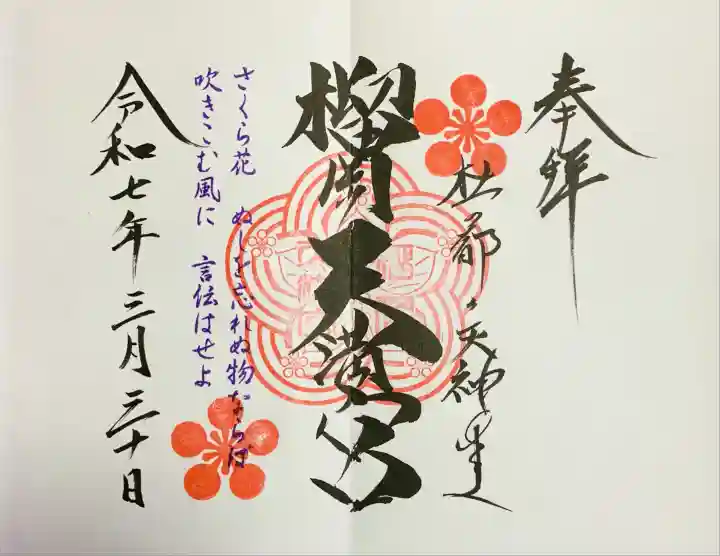 奉拝
杜都ノ天神
榴岡天満宮
さくら花　ぬしを忘れぬ物ならば
吹きこむ風に　言伝はせよ
令和七年三月三十日